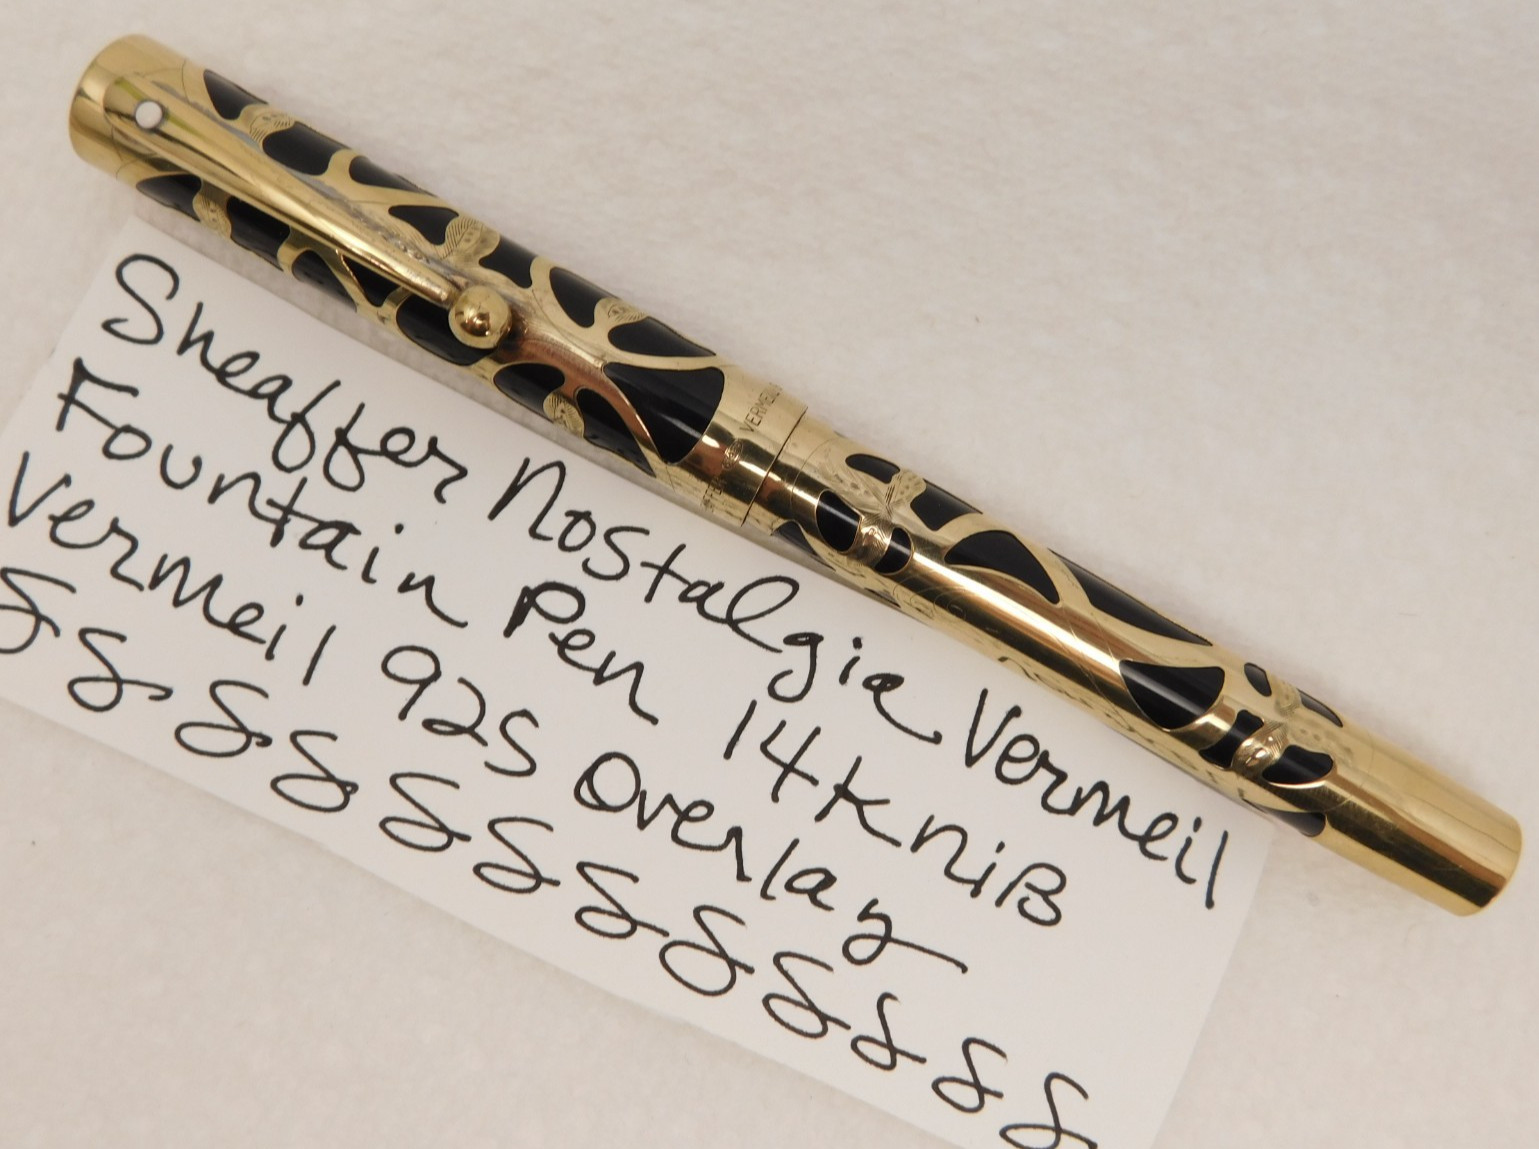 Sheaffer Nostalgia Vermeil
Fountain Pen 14K NiB
Vermeil 925 Overlay
VERMEIL